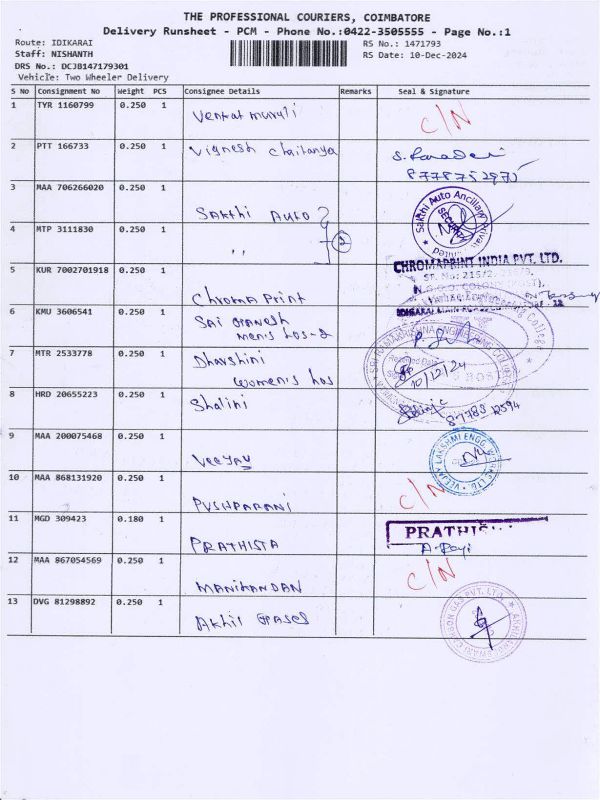 THE PROFESSIONAL COURIERS, COIMBATORE
Delivery Runsheet - PCM - Phone No.:0422-3505555 - Page No.:1
Route: IDIKARAI
RS No.: 1471793
Staff: NISHANTH
RS Date: 10-Dec-2024
DRS No.: DCJB147179301
Vehicle: Two Wheeler Delivery
S No Consignment No Weight PCS Consignee Details Remarks Seal & Signature
1 TYR 1160799 0.250 1 Venkat murali C/N
2 PTT 166733 0.250 1 Vignesh Chaitanya
3 MAA 706266020 0.250 1 Sakthi Auto
Sakthi Auto Ancillary Private Limited
SECURITY
4 MTP 3111830 0.250 1 ,, 2
CHROMAPRINT INDIA PVT. LTD.
5 KUR 7002701918 0.250 1 Chroma Print
6 KMU 3606541 0.250 1 Sai Ganesh
men's hos-2
Engineering College
7 MTR 2533778 0.250 1 Dharshini
women's hos
10/12/24
8 HRD 20655223 0.250 1 Shalini
9 MAA 200075468 0.250 1 Veejay
VEEJAY LAKSHMI ENGG. WORKS LTD.
10 MAA 868131920 0.250 1 PUSHPARANI C/N
11 MGD 309423 0.180 1 PRATHISTA
PRATHIS
12 MAA 867054569 0.250 1 MANIKANDAN C/N
13 DVG 81298892 0.250 1 Akhil Gases
CARBON GAS PVT. LTD.